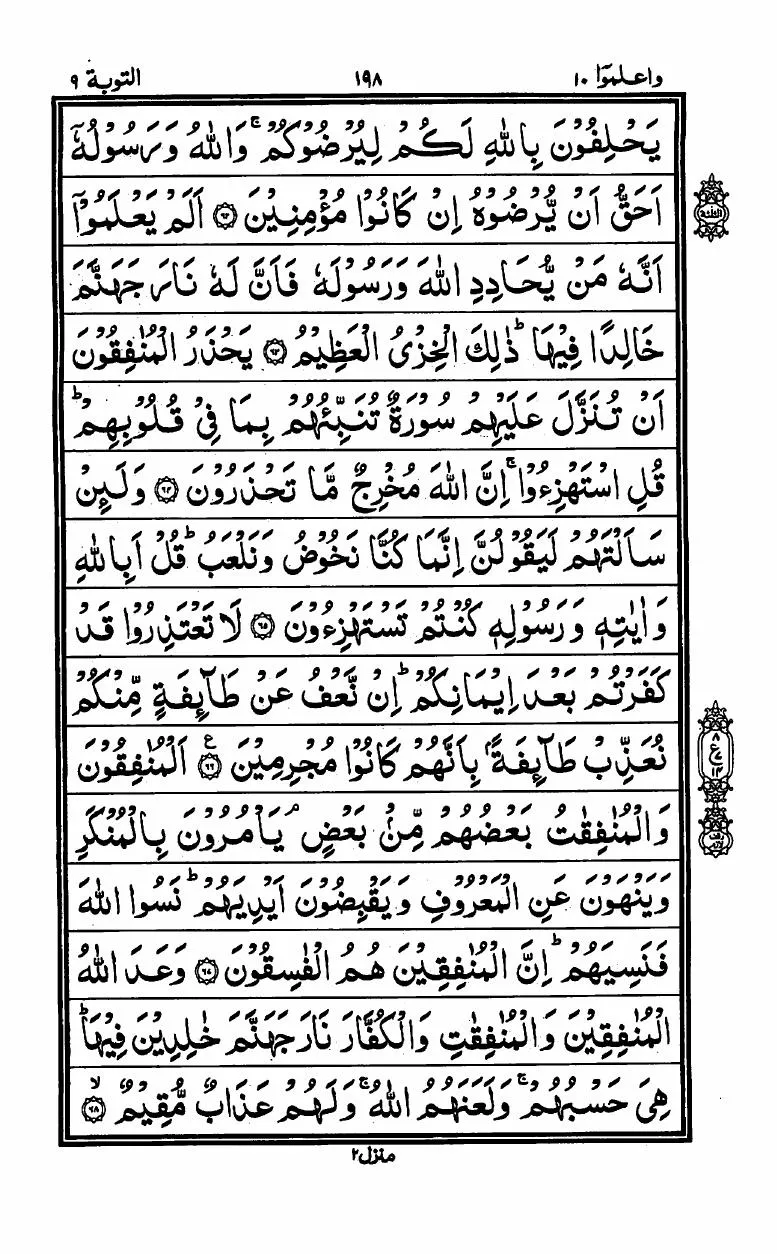 واعلموٓا ١٠
١٩٨
التوبة ٩
يَحْلِفُوْنَ بِاللّٰهِ لَكُمْ لِيُرْضُوْكُمْ ۚ وَاللّٰهُ وَرَسُوْلُهٗٓ
اَحَقُّ اَنْ يُّرْضُوْهُ اِنْ كَانُوْا مُؤْمِنِيْنَ ﴿٦٢﴾ اَلَمْ يَعْلَمُوْٓا
اَنَّهٗ مَنْ يُّحَادِدِ اللّٰهَ وَرَسُوْلَهٗ فَاَنَّ لَهٗ نَارَ جَهَنَّمَ
خَالِدًا فِيْهَا ؕ ذٰلِكَ الْخِزْىُ الْعَظِيْمُ ﴿٦٣﴾ يَحْذَرُ الْمُنٰفِقُوْنَ
اَنْ تُنَزَّلَ عَلَيْهِمْ سُوْرَةٌ تُنَبِّئُهُمْ بِمَا فِىْ قُلُوْبِهِمْ ؕ
قُلِ اسْتَهْزِءُوْا ۚ اِنَّ اللّٰهَ مُخْرِجٌ مَّا تَحْذَرُوْنَ ﴿٦٤﴾ وَلَىِٕنْ
سَاَلْتَهُمْ لَيَقُوْلُنَّ اِنَّمَا كُنَّا نَخُوْضُ وَنَلْعَبُ ؕ قُلْ اَبِاللّٰهِ
وَاٰيٰتِهٖ وَرَسُوْلِهٖ كُنْتُمْ تَسْتَهْزِءُوْنَ ﴿٦٥﴾ لَا تَعْتَذِرُوْا قَدْ
كَفَرْتُمْ بَعْدَ اِيْمَانِكُمْ ؕ اِنْ نَّعْفُ عَنْ طَآىِٕفَةٍ مِّنْكُمْ
نُعَذِّبْ طَآىِٕفَةًۢ بِاَنَّهُمْ كَانُوْا مُجْرِمِيْنَ ﴿٦٦﴾ ع اَلْمُنٰفِقُوْنَ
وَالْمُنٰفِقٰتُ بَعْضُهُمْ مِّنْۢ بَعْضٍ ۘ يَاْمُرُوْنَ بِالْمُنْكَرِ
وَيَنْهَوْنَ عَنِ الْمَعْرُوْفِ وَيَقْبِضُوْنَ اَيْدِيَهُمْ ؕ نَسُوا اللّٰهَ
فَنَسِيَهُمْ ؕ اِنَّ الْمُنٰفِقِيْنَ هُمُ الْفٰسِقُوْنَ ﴿٦٧﴾ وَعَدَ اللّٰهُ
الْمُنٰفِقِيْنَ وَالْمُنٰفِقٰتِ وَالْكُفَّارَ نَارَ جَهَنَّمَ خٰلِدِيْنَ فِيْهَا ؕ
هِىَ حَسْبُهُمْ ۚ وَلَعَنَهُمُ اللّٰهُ ۚ وَلَهُمْ عَذَابٌ مُّقِيْمٌ ۙ ﴿٦٨﴾
٨
ع
١٤
منزل ٢